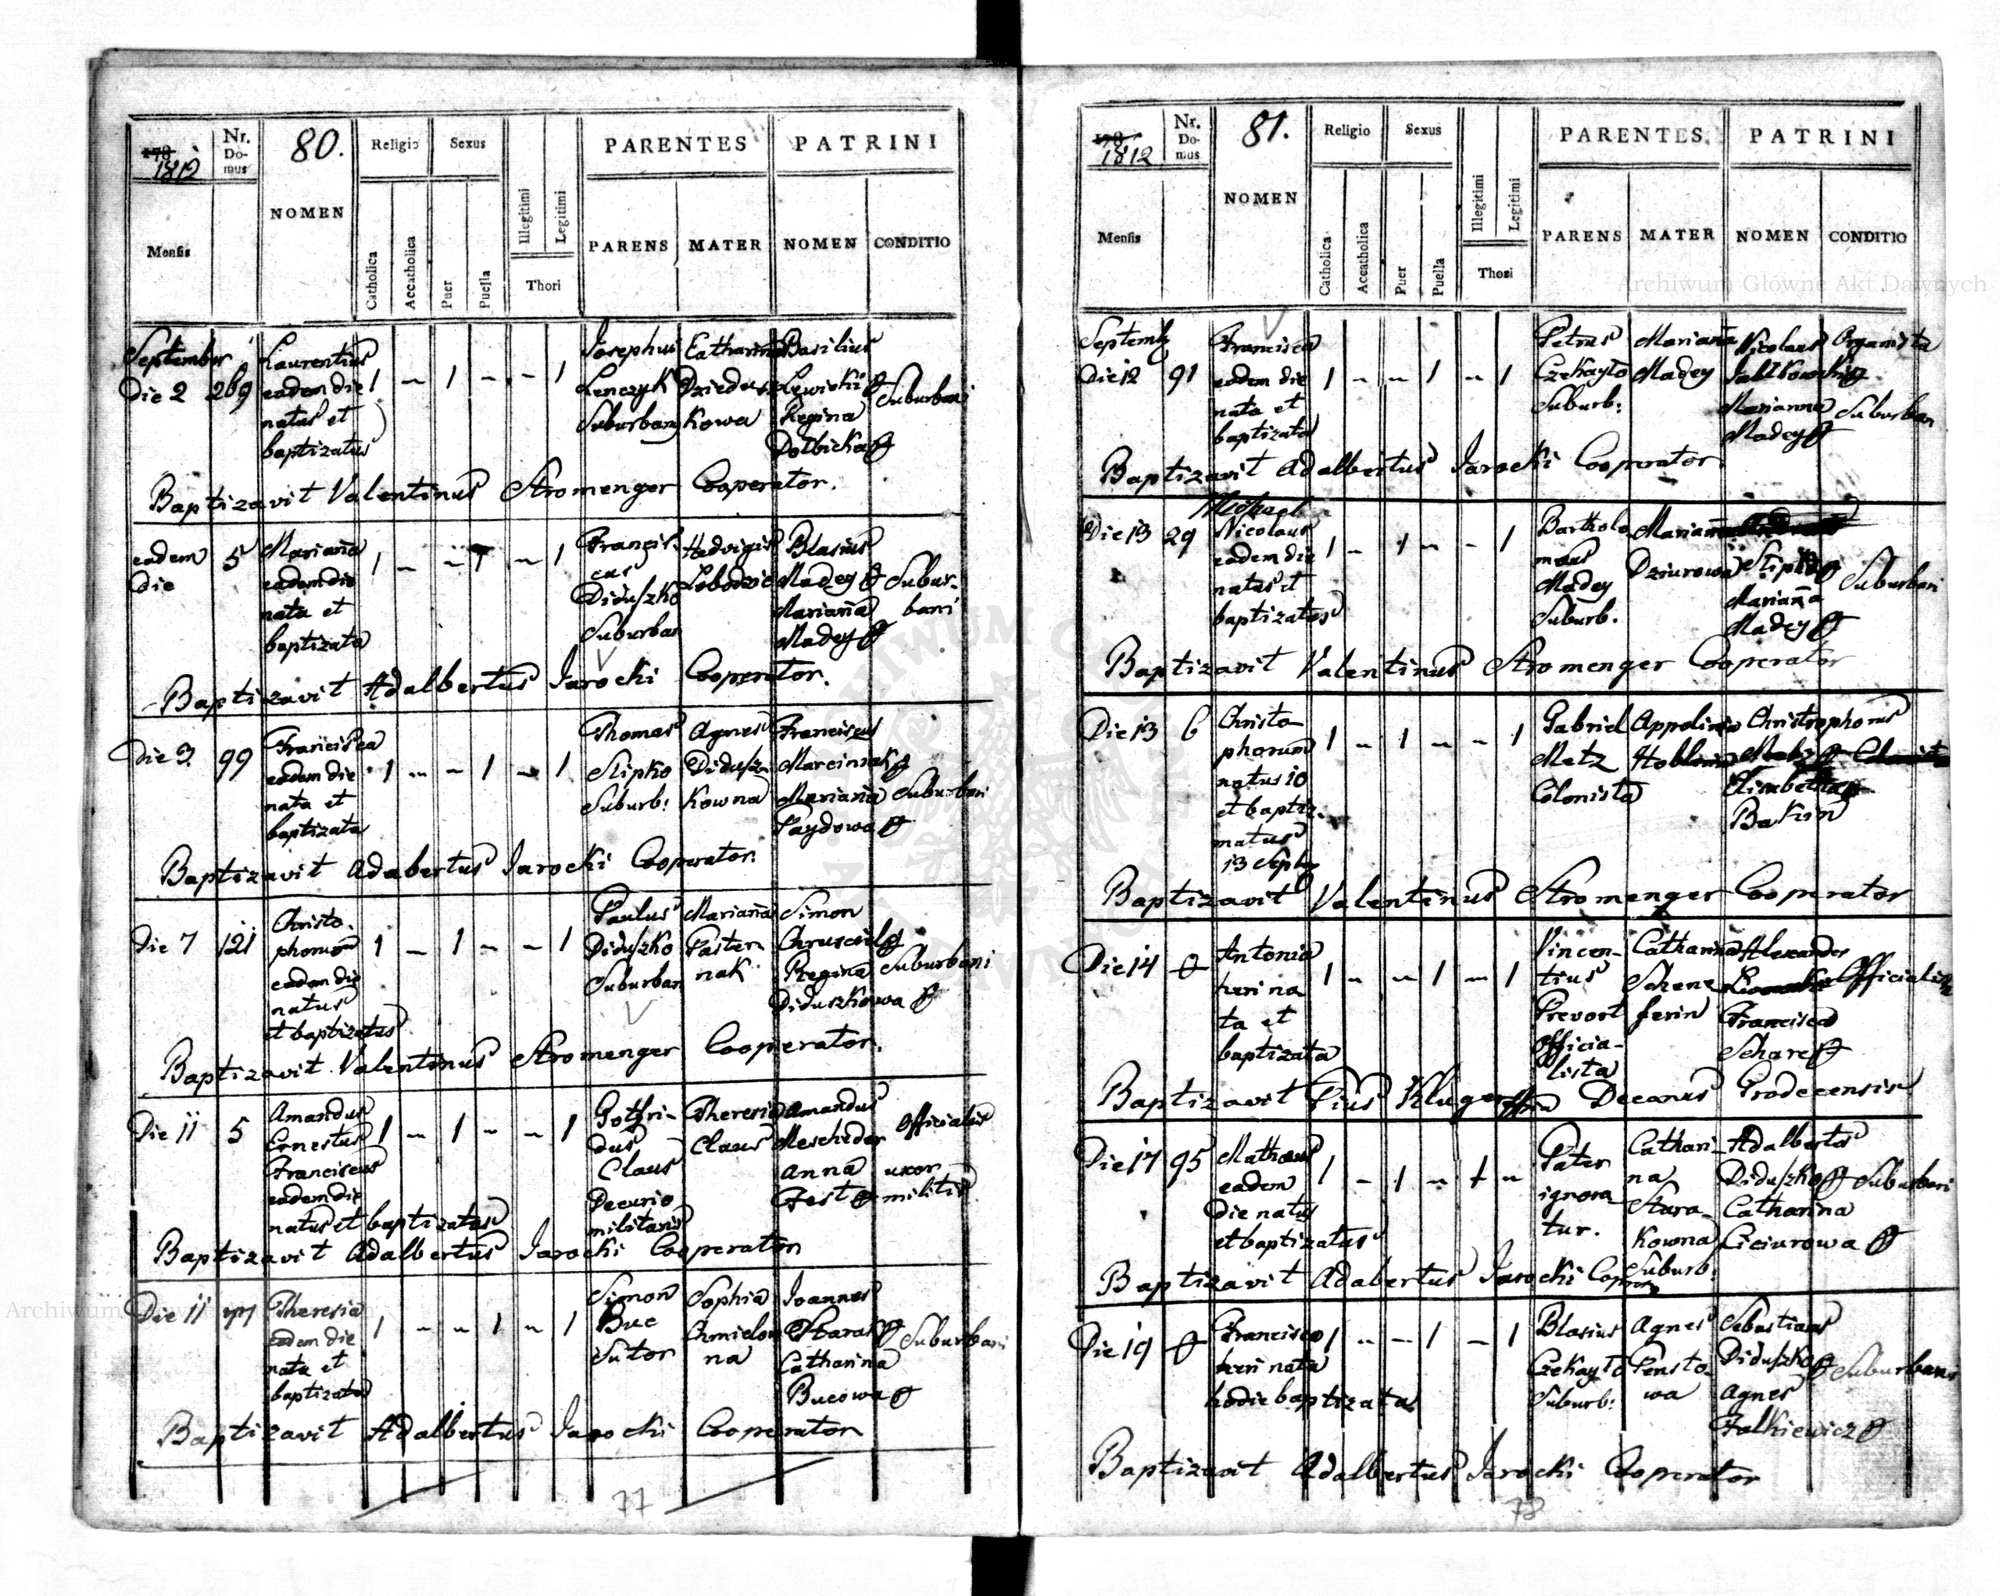 1812
Nr. Domus
80.
NOMEN
Religio
Sexus
PARENTES
PATRINI
Mensis
Catholica
Accatholica
Puer
Puella
Illegitimi
Legitimi
Thori
PARENS
MATER
NOMEN
CONDITIO
September
Die 2 269 Laurentius eadem die natus et baptizatus 1 – 1 – – 1 Josephus Lenczyk Suburban Catharina Basilius Lewicki Regina Suburbani
Baptizavit Valentinus Stromenger Cooperator.
eadem die 5 Marianna eadem die nata et baptizata 1 – – 1 – 1 Franciscus Diduszko Suburban Hedvigis Blasius Madey Marianna Madey Suburbani
Baptizavit Adalbertus Jarocki Cooperator.
Die 3 99 Francisca eadem die nata et baptizata 1 – – 1 – 1 Thomas Slipko Suburb: Agnes Diduszkowna Franciscus Marciniak Marianna Paydowa Suburbani
Baptizavit Adabertus Jarocki Cooperator.
Die 7 121 Christophorus eadem die natus et baptizatus 1 – 1 – – 1 Paulus Diduszko Suburban Marianna Pasternak Simon Chrusciel Regina Diduszkowa Suburbani
Baptizavit Valentinus Stromenger Cooperator.
Die 11 5 Amandus Ernestus Franciscus eadem die natus et baptizatus 1 – 1 – – 1 Gotfridus Claus Decurio militaris Theresia Claus Amandus Mescheder Anna Fest Officialis uxor militis
Baptizavit Adalbertus Jarocki Cooperator
Die 11 77 Theresia eadem die nata et baptizata 1 – – 1 – 1 Simon Buc Sutor Sophia Chmielowna Joannes Catharina Bucowa Suburbani
Baptizavit Adalbertus Jarocki Cooperator
77
1812
Nr. Domus
81.
NOMEN
Religio
Sexus
PARENTES.
PATRINI
Mensis
Catholica
Accatholica
Puer
Puella
Illegitimi
Legitimi
Thori
PARENS
MATER
NOMEN
CONDITIO
Septemb
Die 12 91 Francisca eadem die nata et baptizata 1 – – 1 – 1 Petrus Czekayło Suburb: Marianna Madey Nicolaus Marianna Madey Organista Suburban
Baptizavit Adalbertus Jarocki Cooperator
Die 13 29 Michael Nicolaus eadem die natus et baptizatus 1 – 1 – – 1 Bartholomæus Madey Suburb. Marianna Dziurowa Slipko Marianna Madey Suburbani
Baptizavit Valentinus Stromenger Cooperator
Die 13 6 Christophorum natus 10 et baptizmatus 13 Septbr 1 – 1 – – 1 Gabriel Metz Colonista Christophorus Metz Elisabetha
Baptizavit Valentinus Stromenger Cooperator
Die 14 Antonia heri nata et baptizata 1 – – 1 – 1 Vincentius Prevort Officialista Catharina Scheneferin Alexander Francisca Officialis
Baptizavit Pius Kluger Decanus Grodecensis
Die 17 95 Mathæus eadem die natus et baptizatus 1 – 1 – 1 – Pater ignoratur. Catharina Starakowna Suburb: Adalbertus Diduszko Catharina Ciciurowa Suburbani
Baptizavit Adabertus Jarocki Cooper
Die 19 Francisca heri nata hodie baptizata 1 – – 1 – 1 Blasius Czekayło Suburb: Agnes Sebastianus Diduszko Agnes Falkiewicz Suburbani
Baptizavit Adalbertus Jarocki Cooperator
78
Archiwum Główne Akt Dawnych